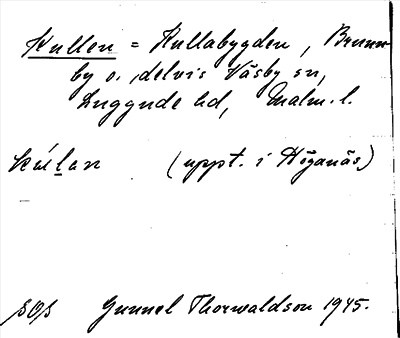 Kullen = Kullabygden, Brunn-
by o. delvis Väsby sn,
Luggude hd, Malm. l.
kúlan (uppt. i Höganäs)
Gunnel Thorwaldson 1945.